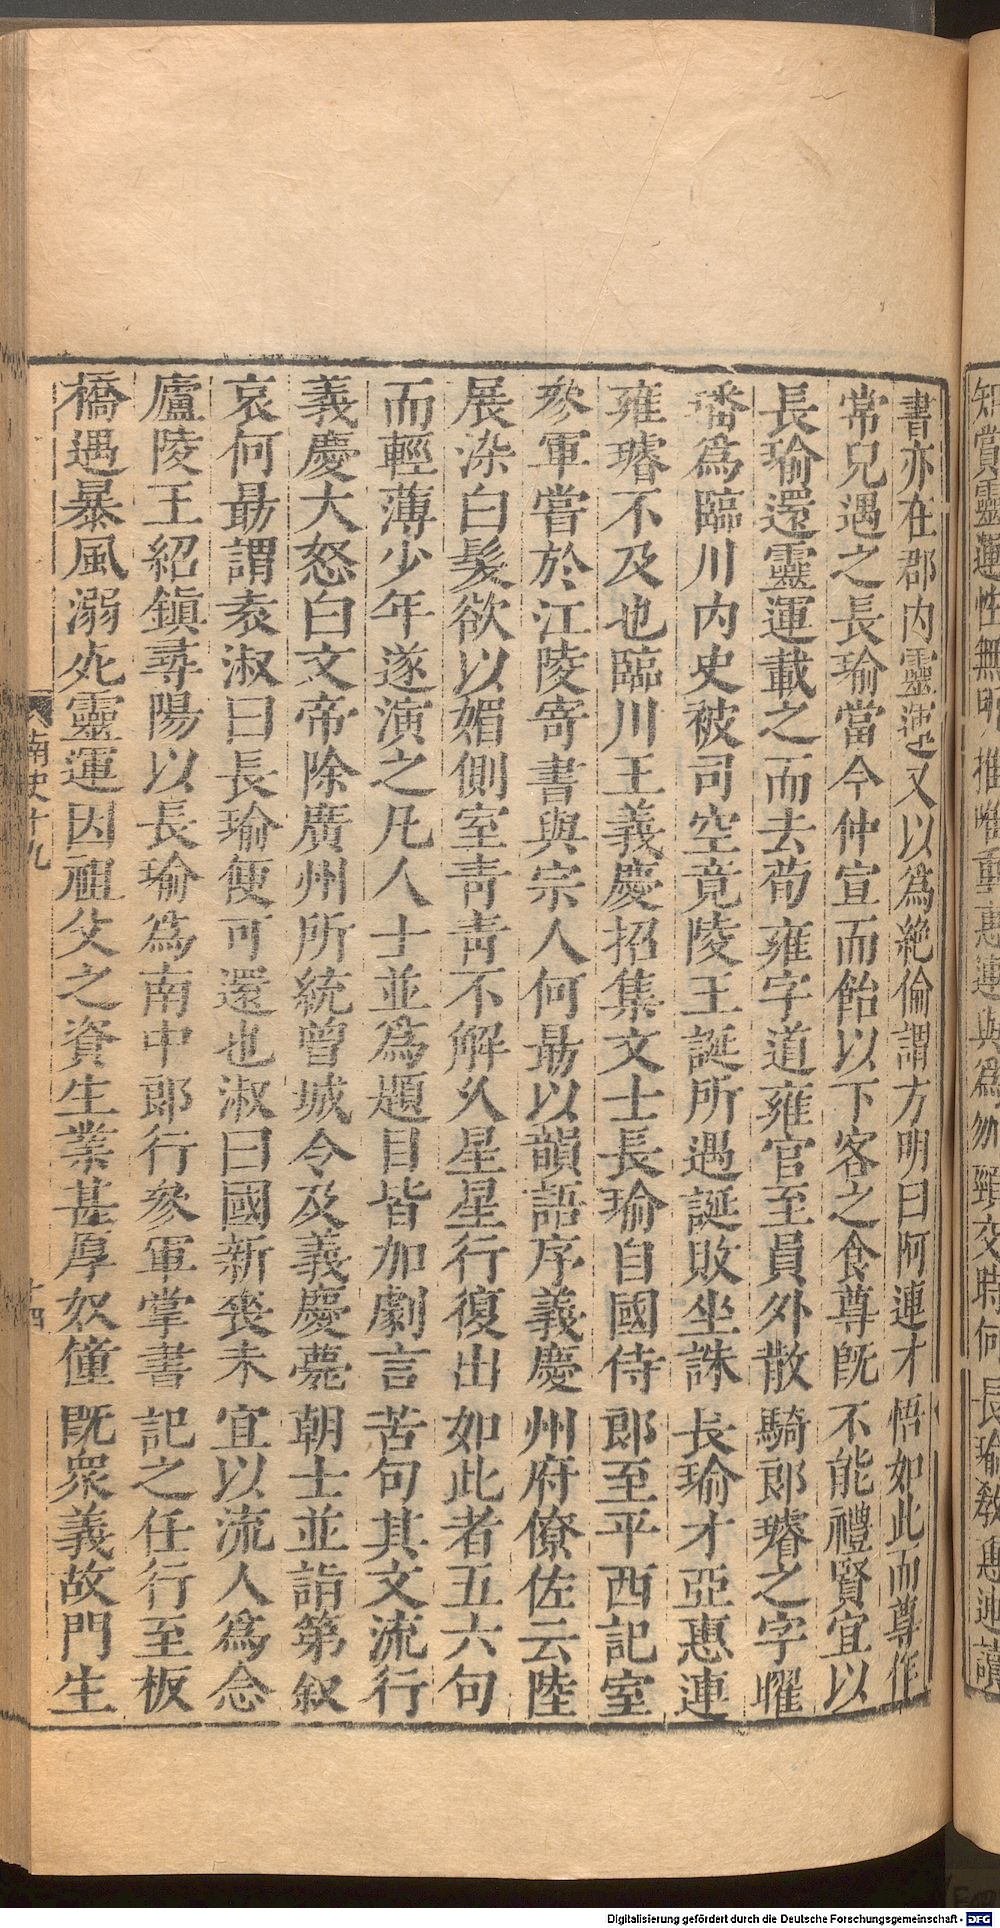 書亦在郡内靈運又以為絶倫謂方明曰阿連才悟如此而尊作
常兒遇之長瑜當今仲宣而飴以下客之食尊既不能禮賢宜以
長瑜還靈運載之而去荀雍字道雍官至員外散騎郎璿之字曜
璠為臨川内史被司空竟陵王誕所遇誕敗坐誅長瑜才亞惠連
雍璿不及也臨川王義慶招集文士長瑜自國侍郎至平西記室
叅軍嘗於江陵寄書與宗人何勗以韻語序義慶州府僚佐云陸
展染白髮欲以媚側室青青不解久星星行復出如此者五六句
而輕薄少年遂演之凡人士並為題目皆加劇言苦句其文流行
義慶大怒白文帝除廣州所統曾城令及義慶薨朝士並詣第叙
哀何勗謂袁淑曰長瑜便可還也淑曰國新喪未宜以流人為念
廬陵王紹鎮尋陽以長瑜為南中郎行叅軍掌書記之任行至板
橋遇暴風溺死靈運因祖父之資生業甚厚奴僮既衆義故門生
南史十九
十四
Digitalisierung gefördert durch die Deutsche Forschungsgemeinschaft - DFG